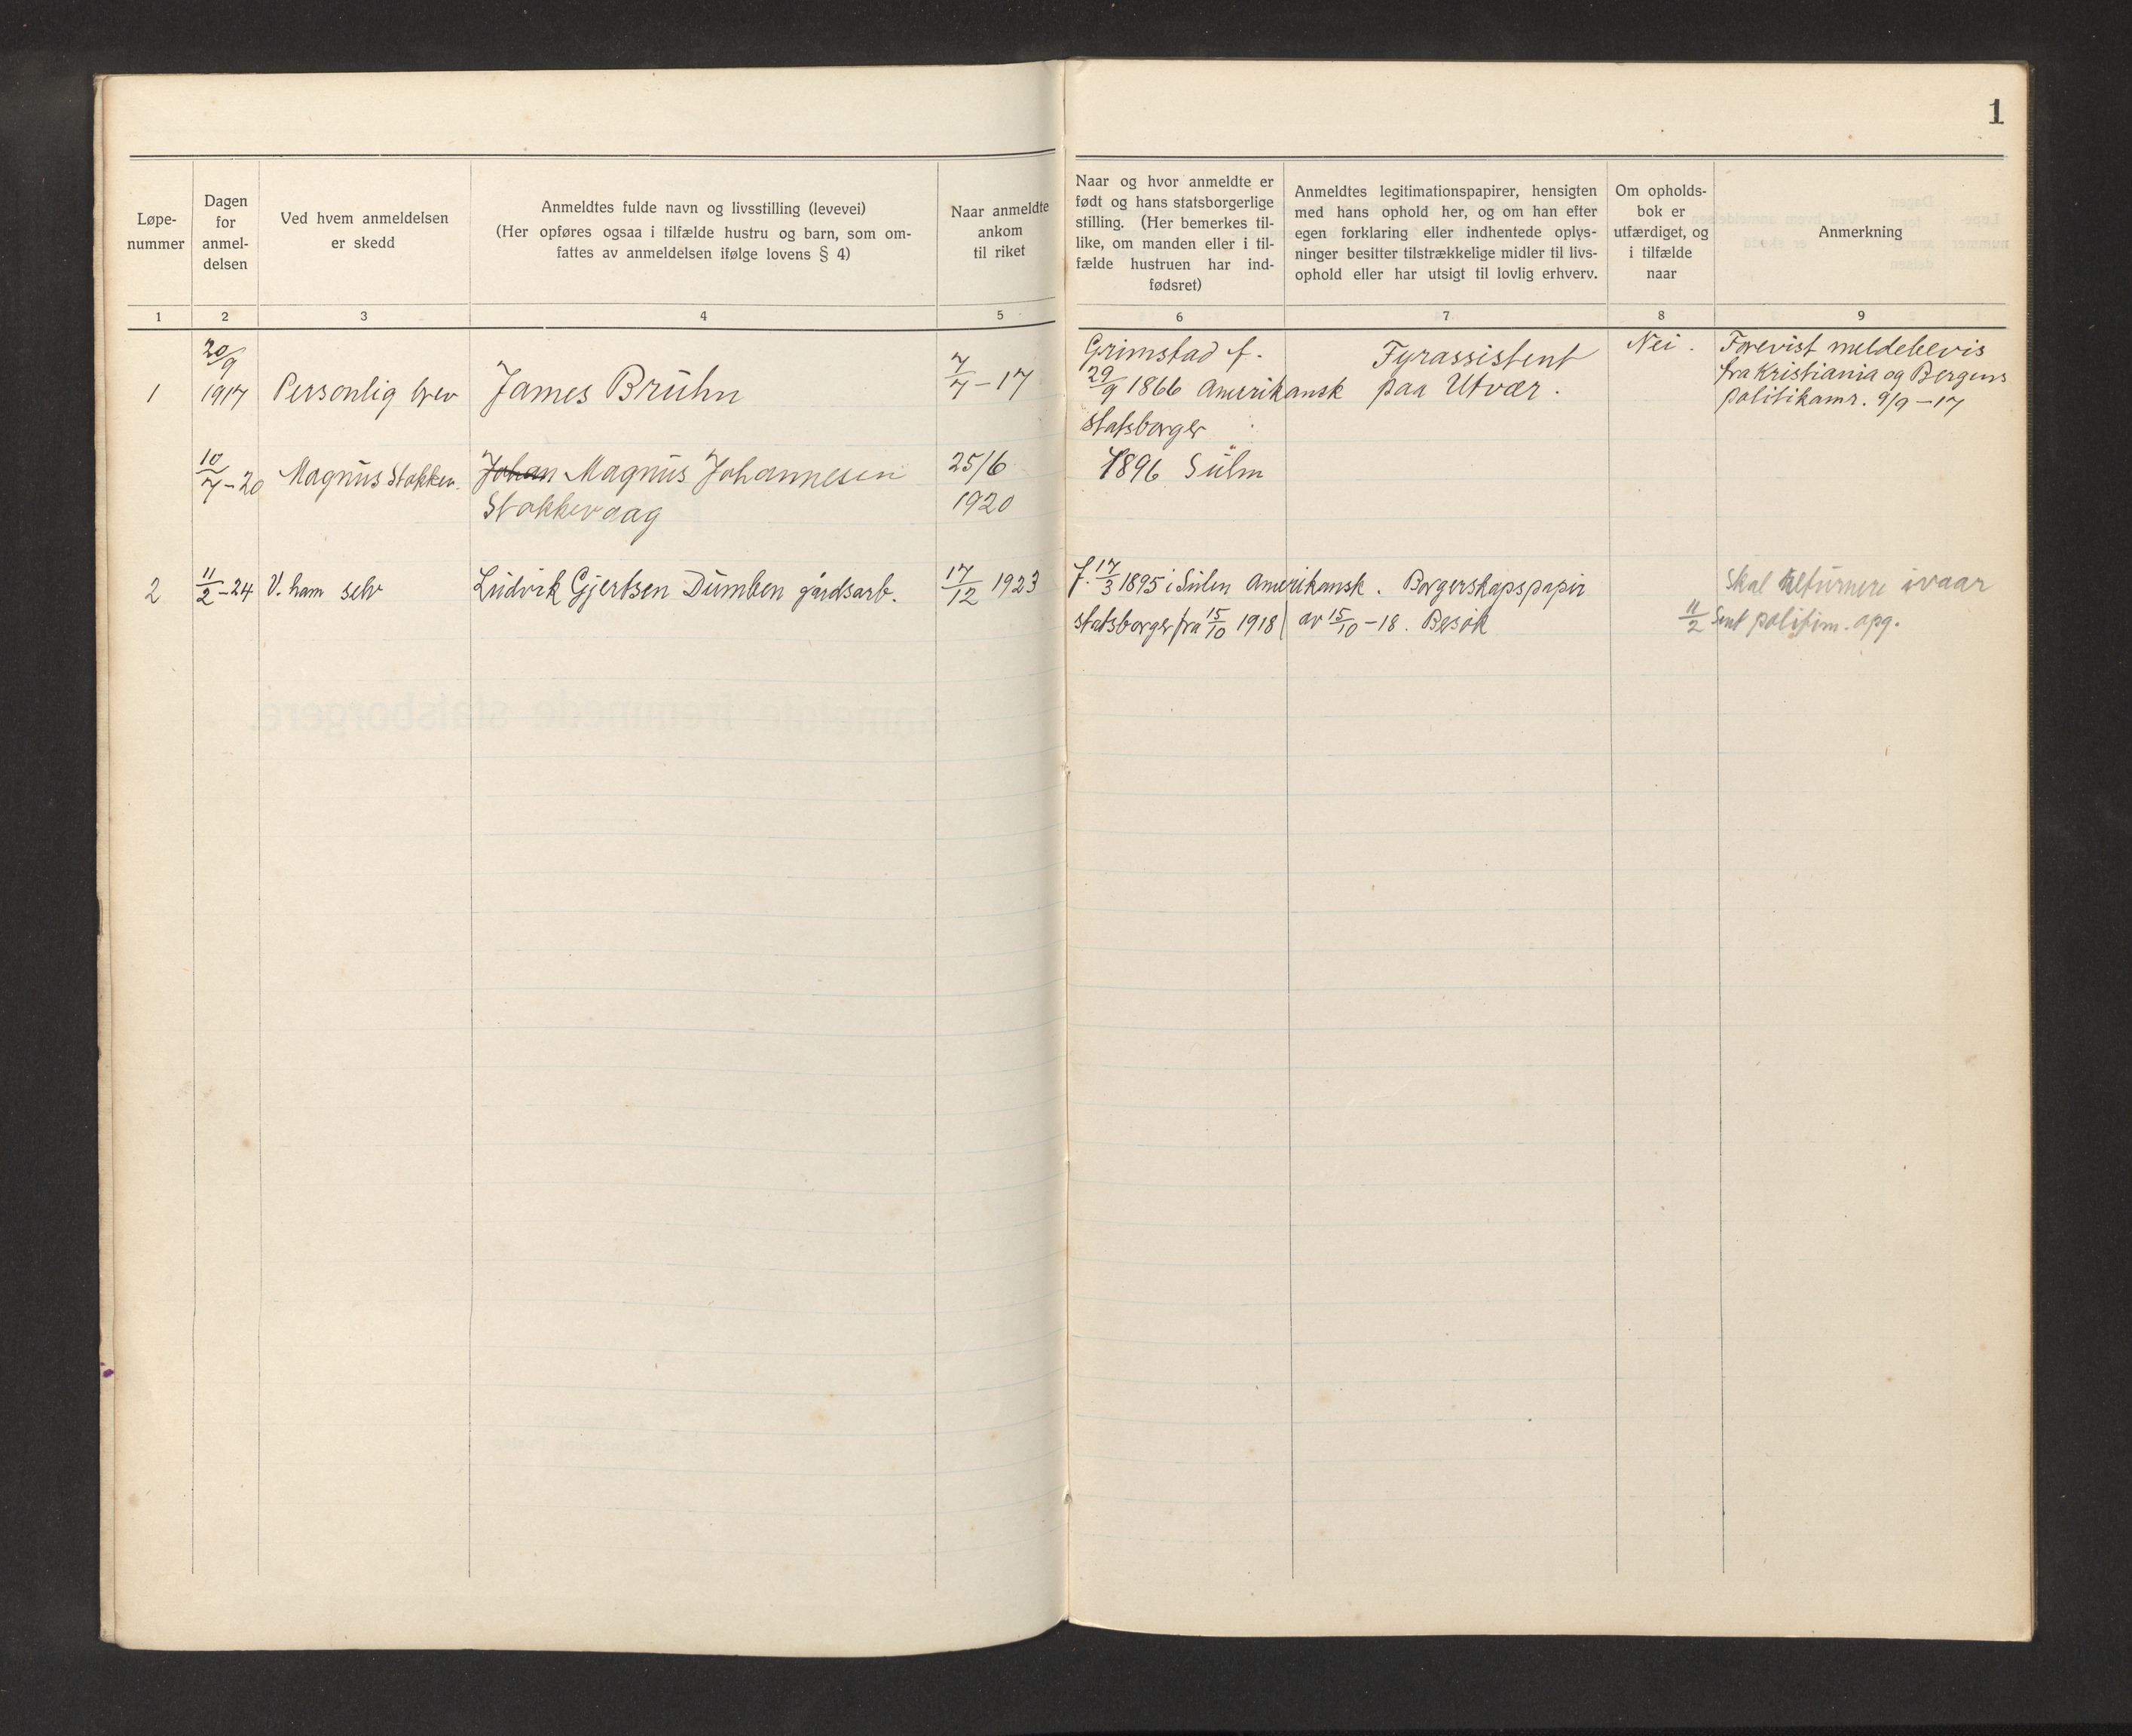 1
Løpe-
nummer
Dagen
for
anmel-
delsen
Ved hvem anmeldelsen
er skedd
Anmeldtes fulde navn og livsstilling (levevei)
(Her opføres ogsaa i tilfælde hustru og barn, som om-
fattes av anmeldelsen ifølge lovens § 4)
Naar anmeldte
ankom
til riket
Naar og hvor anmeldte er
født og hans statsborgerlige
stilling. (Her bemerkes til-
like, om manden eller i til-
fælde hustruen har ind-
fødsret)
Anmeldtes legitimationspapirer, hensigten
med hans ophold her, og om han efter
egen forklaring eller indhentede oplys-
ninger besitter tilstrækkelige midler til livs-
ophold eller har utsigt til lovlig erhverv.
Om opholds-
bok er
utfærdiget, og
i tilfælde
naar
Anmerkning
1 2 3 4 5 6 7 8 9
1
20/9
1917
Personlig brev
James Bruhn
7/7-17
Grimstad f.
29/9 1866 Amerikansk
statsborger
Fyrassistent
paa Utvær.
Nei.
Forevist meldebevis
fra Kristiania og Bergens
politikamr. 9/9-17
10/7-20
Magnus Stokkev.
Johan Magnus Johannesen
Stokkevaag
25/6
1920
1896 Sulen
2
11/2-24
V. ham selv
Ludvik Gjertsen Dumben gårdsarb.
17/12 1923
f. 17/3 1895 i Sulen Amerikansk.
statsborger fra 15/10 1918
Borgerskapspapir
av 15/10-18. Besøk
Skal returnere ivaar
11/2 Sent politim. opg.
Anmeldte fremmede statsborgere.